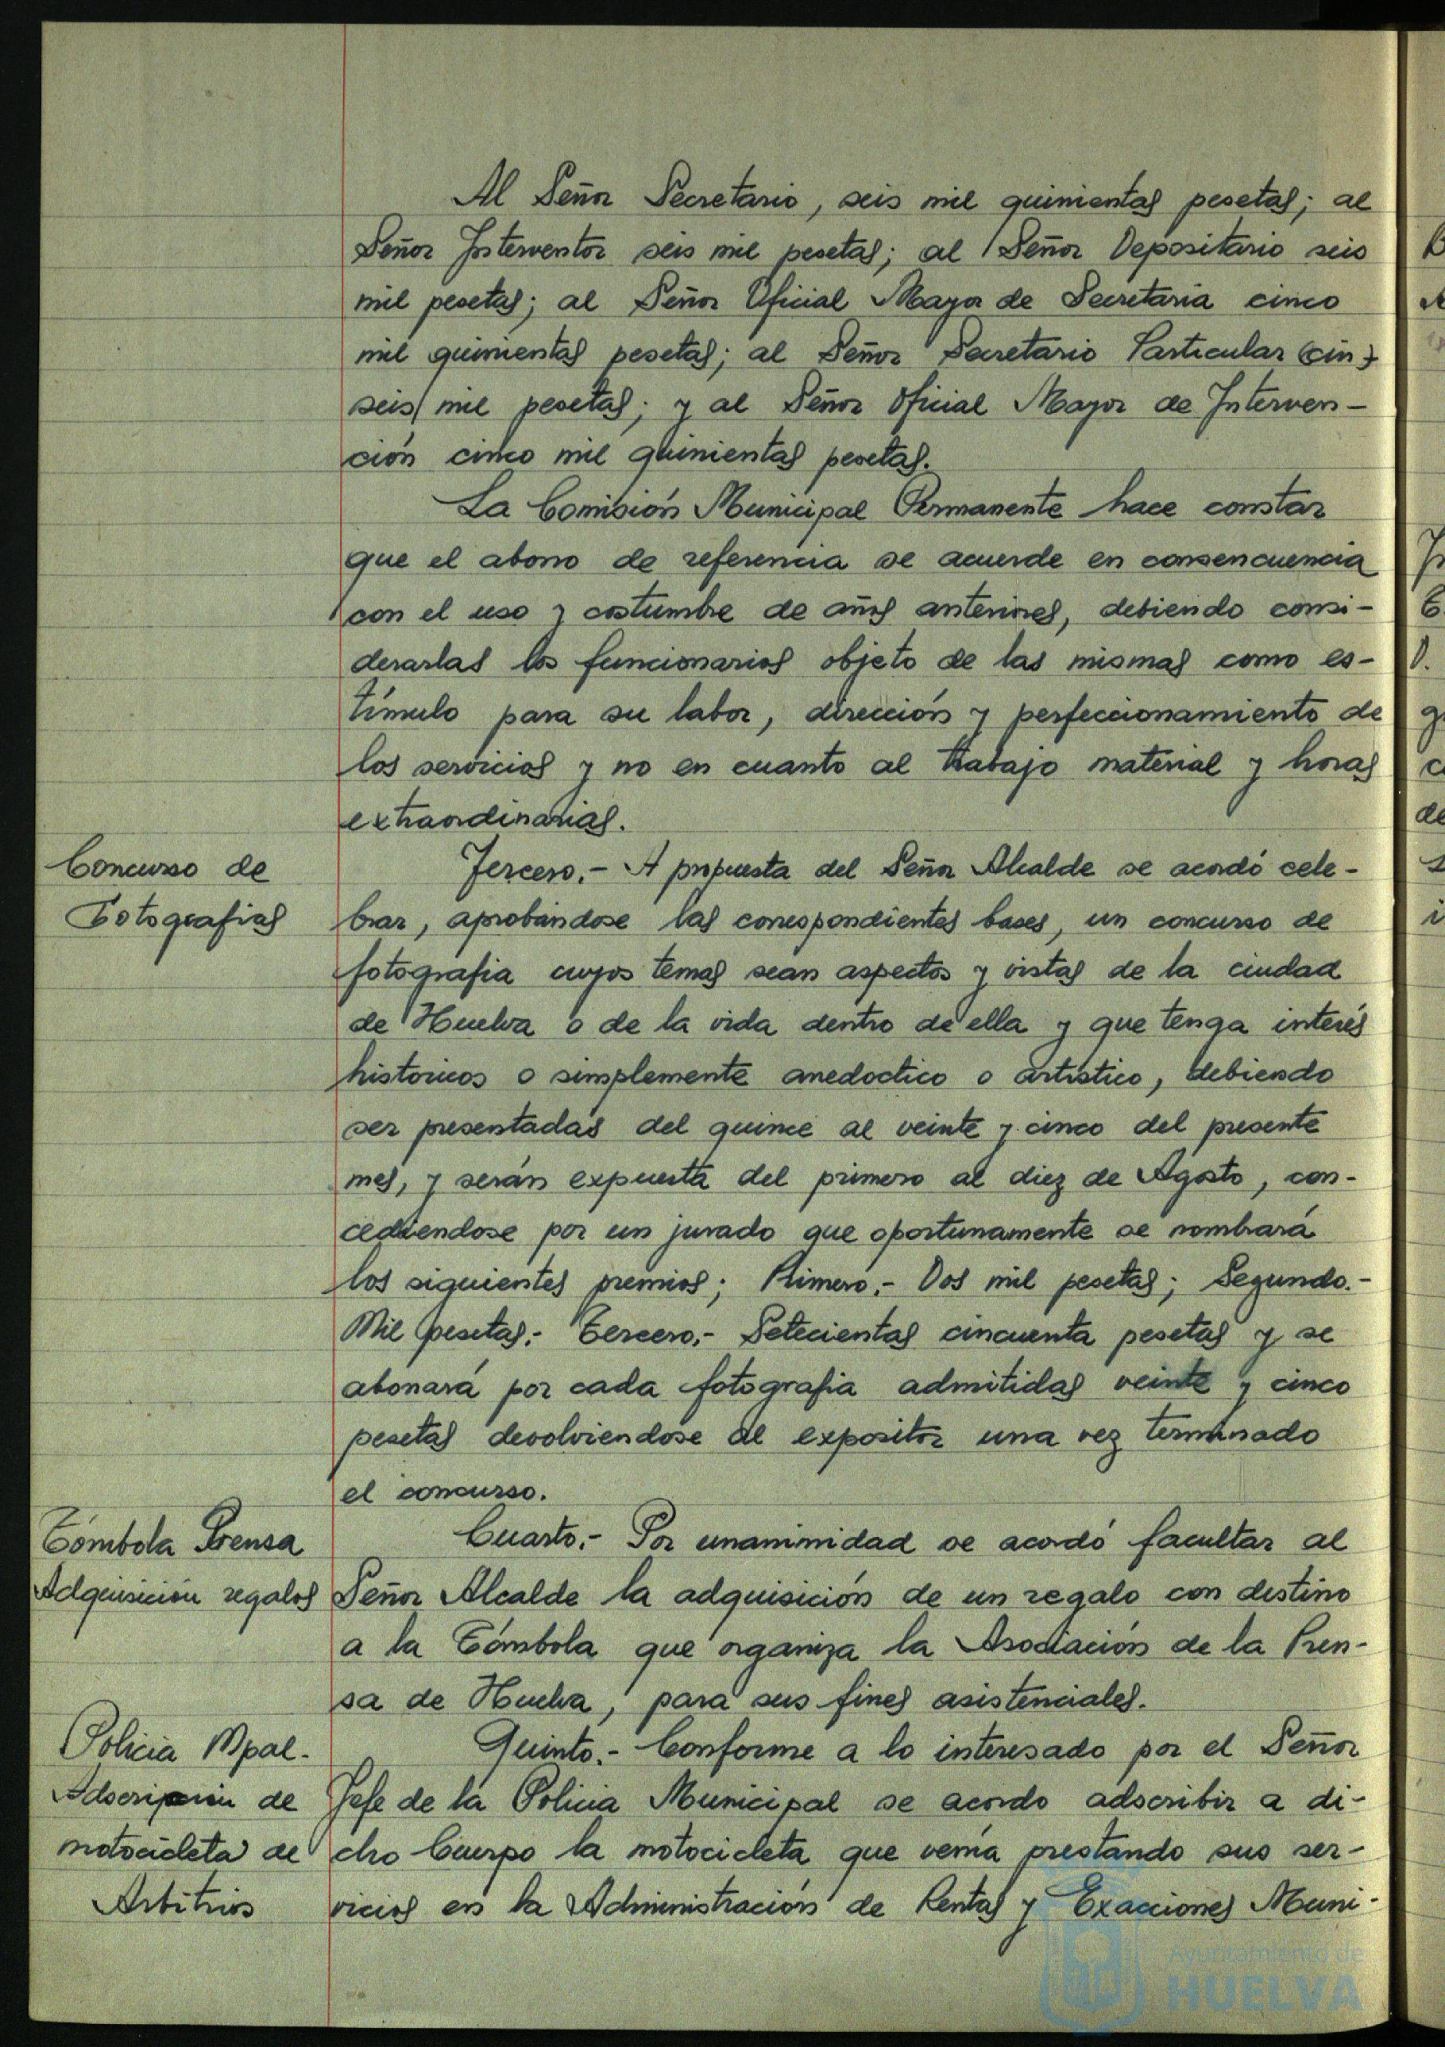 Al Señor Secretario, seis mil quinientas pesetas; al
Señor Interventor seis mil pesetas; al Señor Depositario seis
mil pesetas; al Señor Oficial Mayor de Secretaria cinco
mil quinientas pesetas; al Señor Secretario Particular (cin)
seis/ mil pesetas; y al Señor Oficial Mayor de Interven-
ción cinco mil quinientas pesetas.
La Comisión Municipal Permanente hace constar
que el abono de referencia se acuerde en consencuencia
con el uso y costumbre de años anteriores, debiendo consi-
derarlas los funcionarios objeto de las mismas como es-
tímulo para su labor, dirección y perfeccionamiento de
los servicios y no en cuanto al trabajo material y horas
extraordinarias.
Concurso de
Fotografias
Tercero.- A propuesta del Señor Alcalde se acordó cele-
brar, aprobándose las correspondientes bases, un concurso de
fotografia cuyos temas sean aspectos y vistas de la ciudad
de Huelva o de la vida dentro de ella y que tenga interés
historicos o simplemente anedoctico o artistico, debiendo
ser presentadas del quince al veinte y cinco del presente
mes, y serán expuesta del primero al diez de Agosto, con-
cediendose por un jurado que oportunamente se nombrará
los siguientes premios; Primero.- Dos mil pesetas; Segundo.-
Mil pesetas.- Tercero.- Setecientas cincuenta pesetas y se
abonará por cada fotografia admitidas veinte y cinco
pesetas devolviendose al expositor una vez terminado
el concurso.
Tómbola Prensa
Adquisición regalos
Cuarto.- Por unanimidad se acordó facultar al
Señor Alcalde la adquisición de un regalo con destino
a la Tómbola que organiza la Asociación de la Pren-
sa de Huelva, para sus fines asistenciales.
Policia Mpal.
Adscripción de
motocicleta de
Arbitrios
Quinto.- Conforme a lo interesado por el Señor
Jefe de la Policia Municipal se acordo adscribir a di-
cho Cuerpo la motocicleta que venía prestando sus ser-
vicios en la Administración de Rentas y Exacciones Muni-
Ayuntamiento de
HUELVA